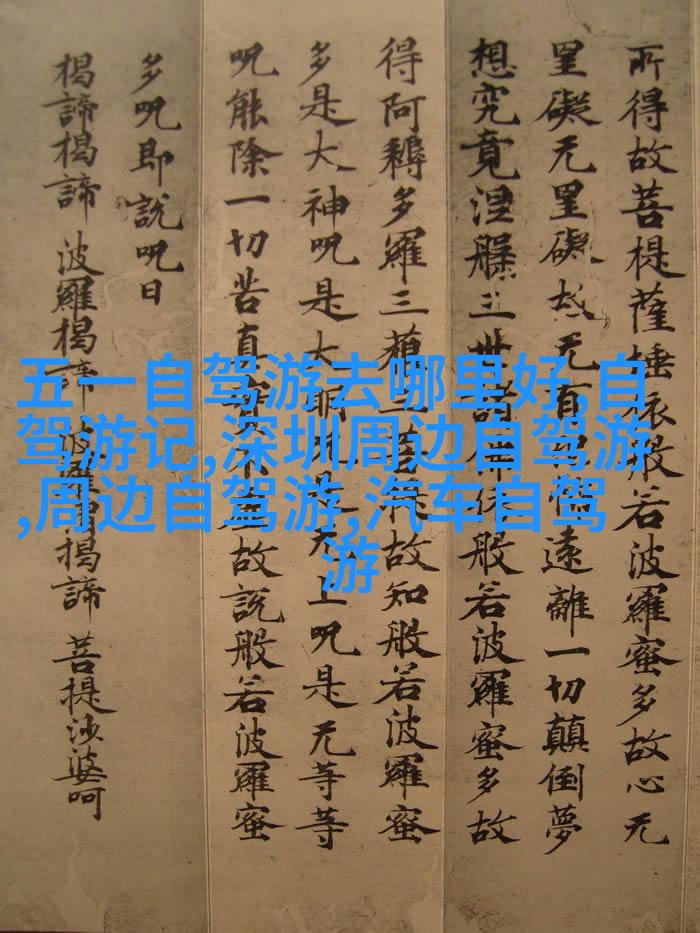 所得故菩提薩埵依般若波羅蜜多故心无
罣礙无罣礙故无有恐怖遠離一切顛倒夢
想究竟涅槃三世諸佛依般若波羅蜜多故
得阿耨多羅三藐三菩提故知般若波羅蜜
多是大神呪是大明呪是无上呪是无等等
呪能除一切苦真實不虛故說般若波羅蜜
多呪即說呪曰
揭諦揭諦 波羅揭諦 波羅僧揭諦 菩提沙婆呵
五一自驾游去哪里好,自
驾游记,深圳周边自驾游
,周边自驾游,汽车自驾
游